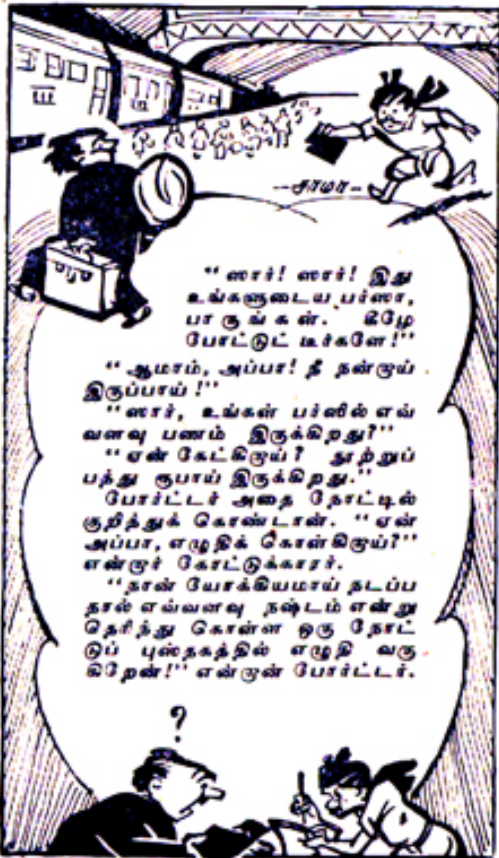 --சாமா--
“ ஸார்! ஸார்! இது
உங்களுடைய பர்ஸா,
பாருங்கள். கீழே
போட்டுட் டீர்களே!”
“ ஆமாம், அப்பா! நீ நன்றாய்
இருப்பாய் !”
“ஸார், உங்கள் பர்ஸில் எவ்
வளவு பணம் இருக்கிறது?”
“ஏன் கேட்கிறாய்? நூற்றுப்
பத்து ரூபாய் இருக்கிறது.”
போர்ட்டர் அதை நோட்டில்
குறித்துக் கொண்டான். “ஏன்
அப்பா, எழுதிக் கொள்கிறாய்?”
என்றார் கோட்டுக்காரர்.
“நான் யோக்கியமாய் நடப்ப
தால் எவ்வளவு நஷ்டம் என்று
தெரிந்து கொள்ள ஒரு நோட்
டுப் புஸ்தகத்தில் எழுதி வரு
கிறேன்!” என்றான் போர்ட்டர்.
?